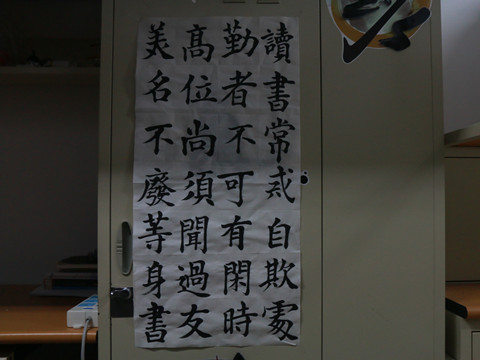 讀書常戒自欺處
勤者不可有閑時
高位尚須聞過友
美名不廢等身書